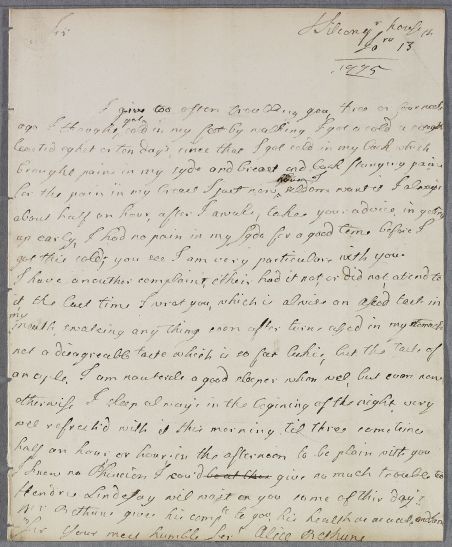 Sir
house
13
1775
I give too often troubling you, two or four weeks
ago I thought I got cold in my foot by walking I got a cold a cough
lasted eight or ten days, since that I got cold in my back which
brought pains in my syde and breast and back stanging pains
for the pain in my breast I part now, seldome want it I always
about half an hour, after I awake, takes your advice, in geting
up early, I had no pain in my syde for a good time before I
got this cold, you see I am very particular with you
I have another complaint, either had it not, or did not atend to
it the last time I wrot you, which is alwise an tast in
my mouth, swaleing any thing even after turns in my stomach
not a disagreable taste which is so far lukie, but the taste of
an I am nautorale a good sleeper when wel, but even now
otherwise I sleep alwayse in the begining of the night, very
wel refresh'd with it this morning, til three some time
half an hour or hour in the afternoon to be plain with you
I knew no Phisician I wou'd give so much trouble to
Hendrie Lindesay wil wait on you some of this day's
Mr Bethune gives his comp.ts to you, his health as usual, and am
Sir Your most humble ser.t Alice Bethune